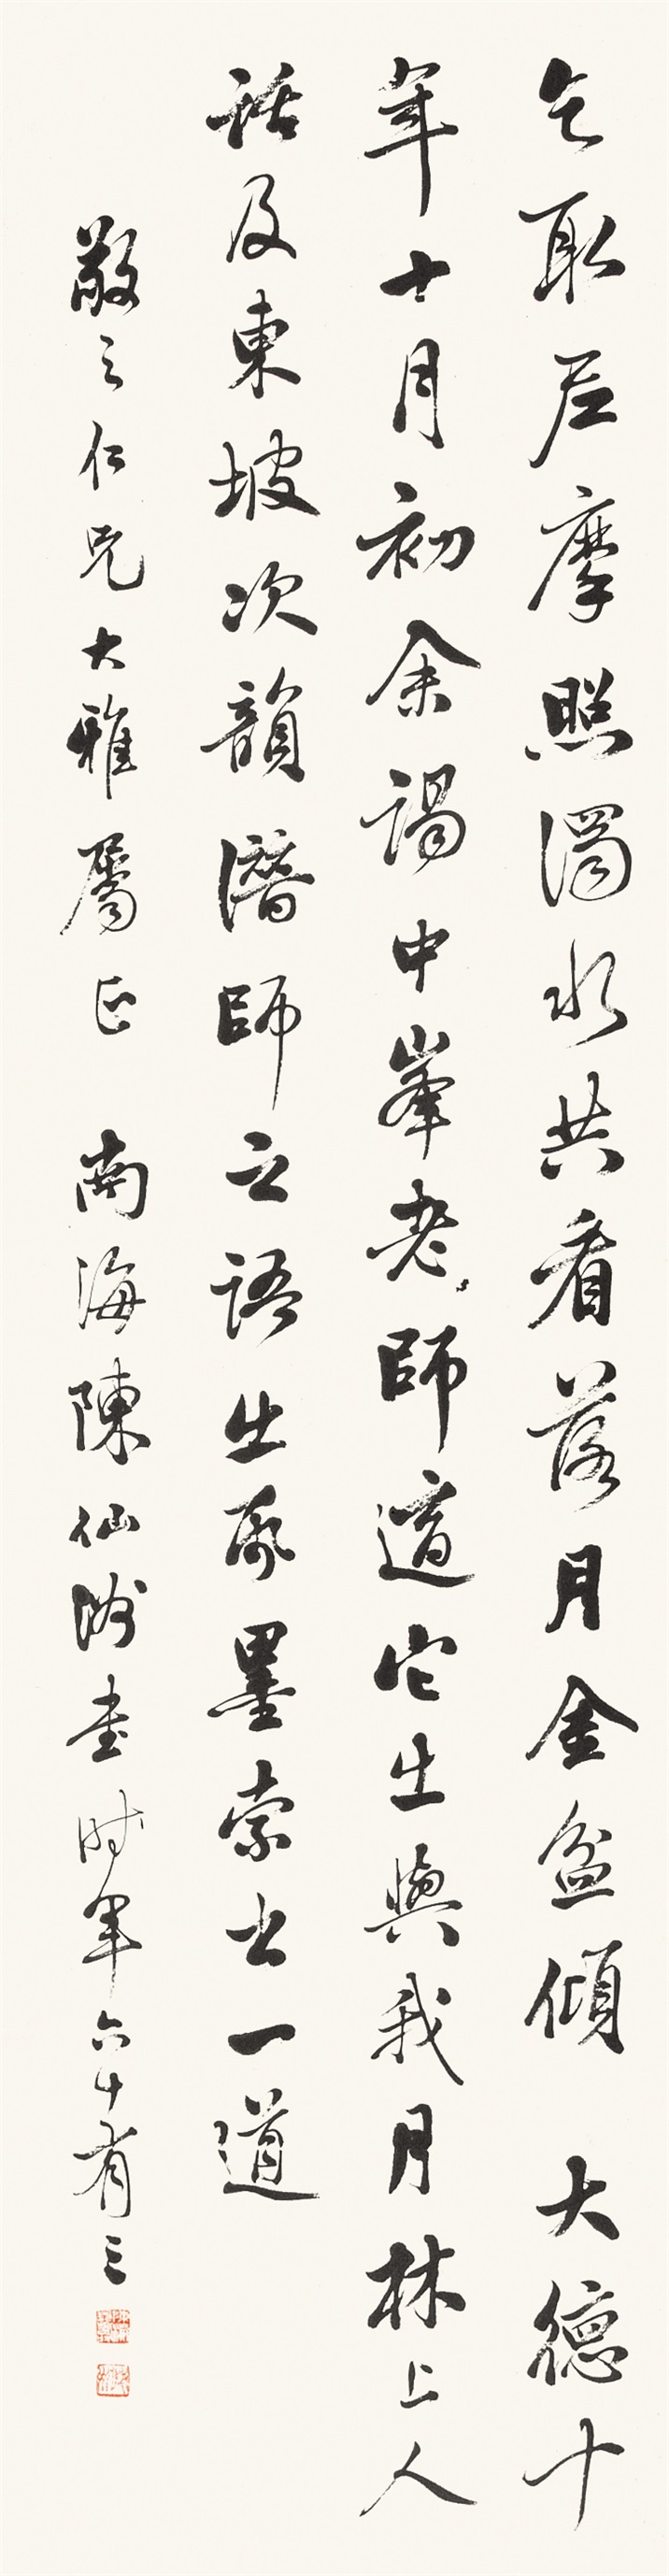 乞取尼摩照濁水共看落月金盆傾 大德十
年十月初余謁中峯老師適它出與我月林上人
話及東坡次韻潛師之語出帋墨索書一道
敬之仁兄大雅屬正 南海陳仙洲書時年六十有三